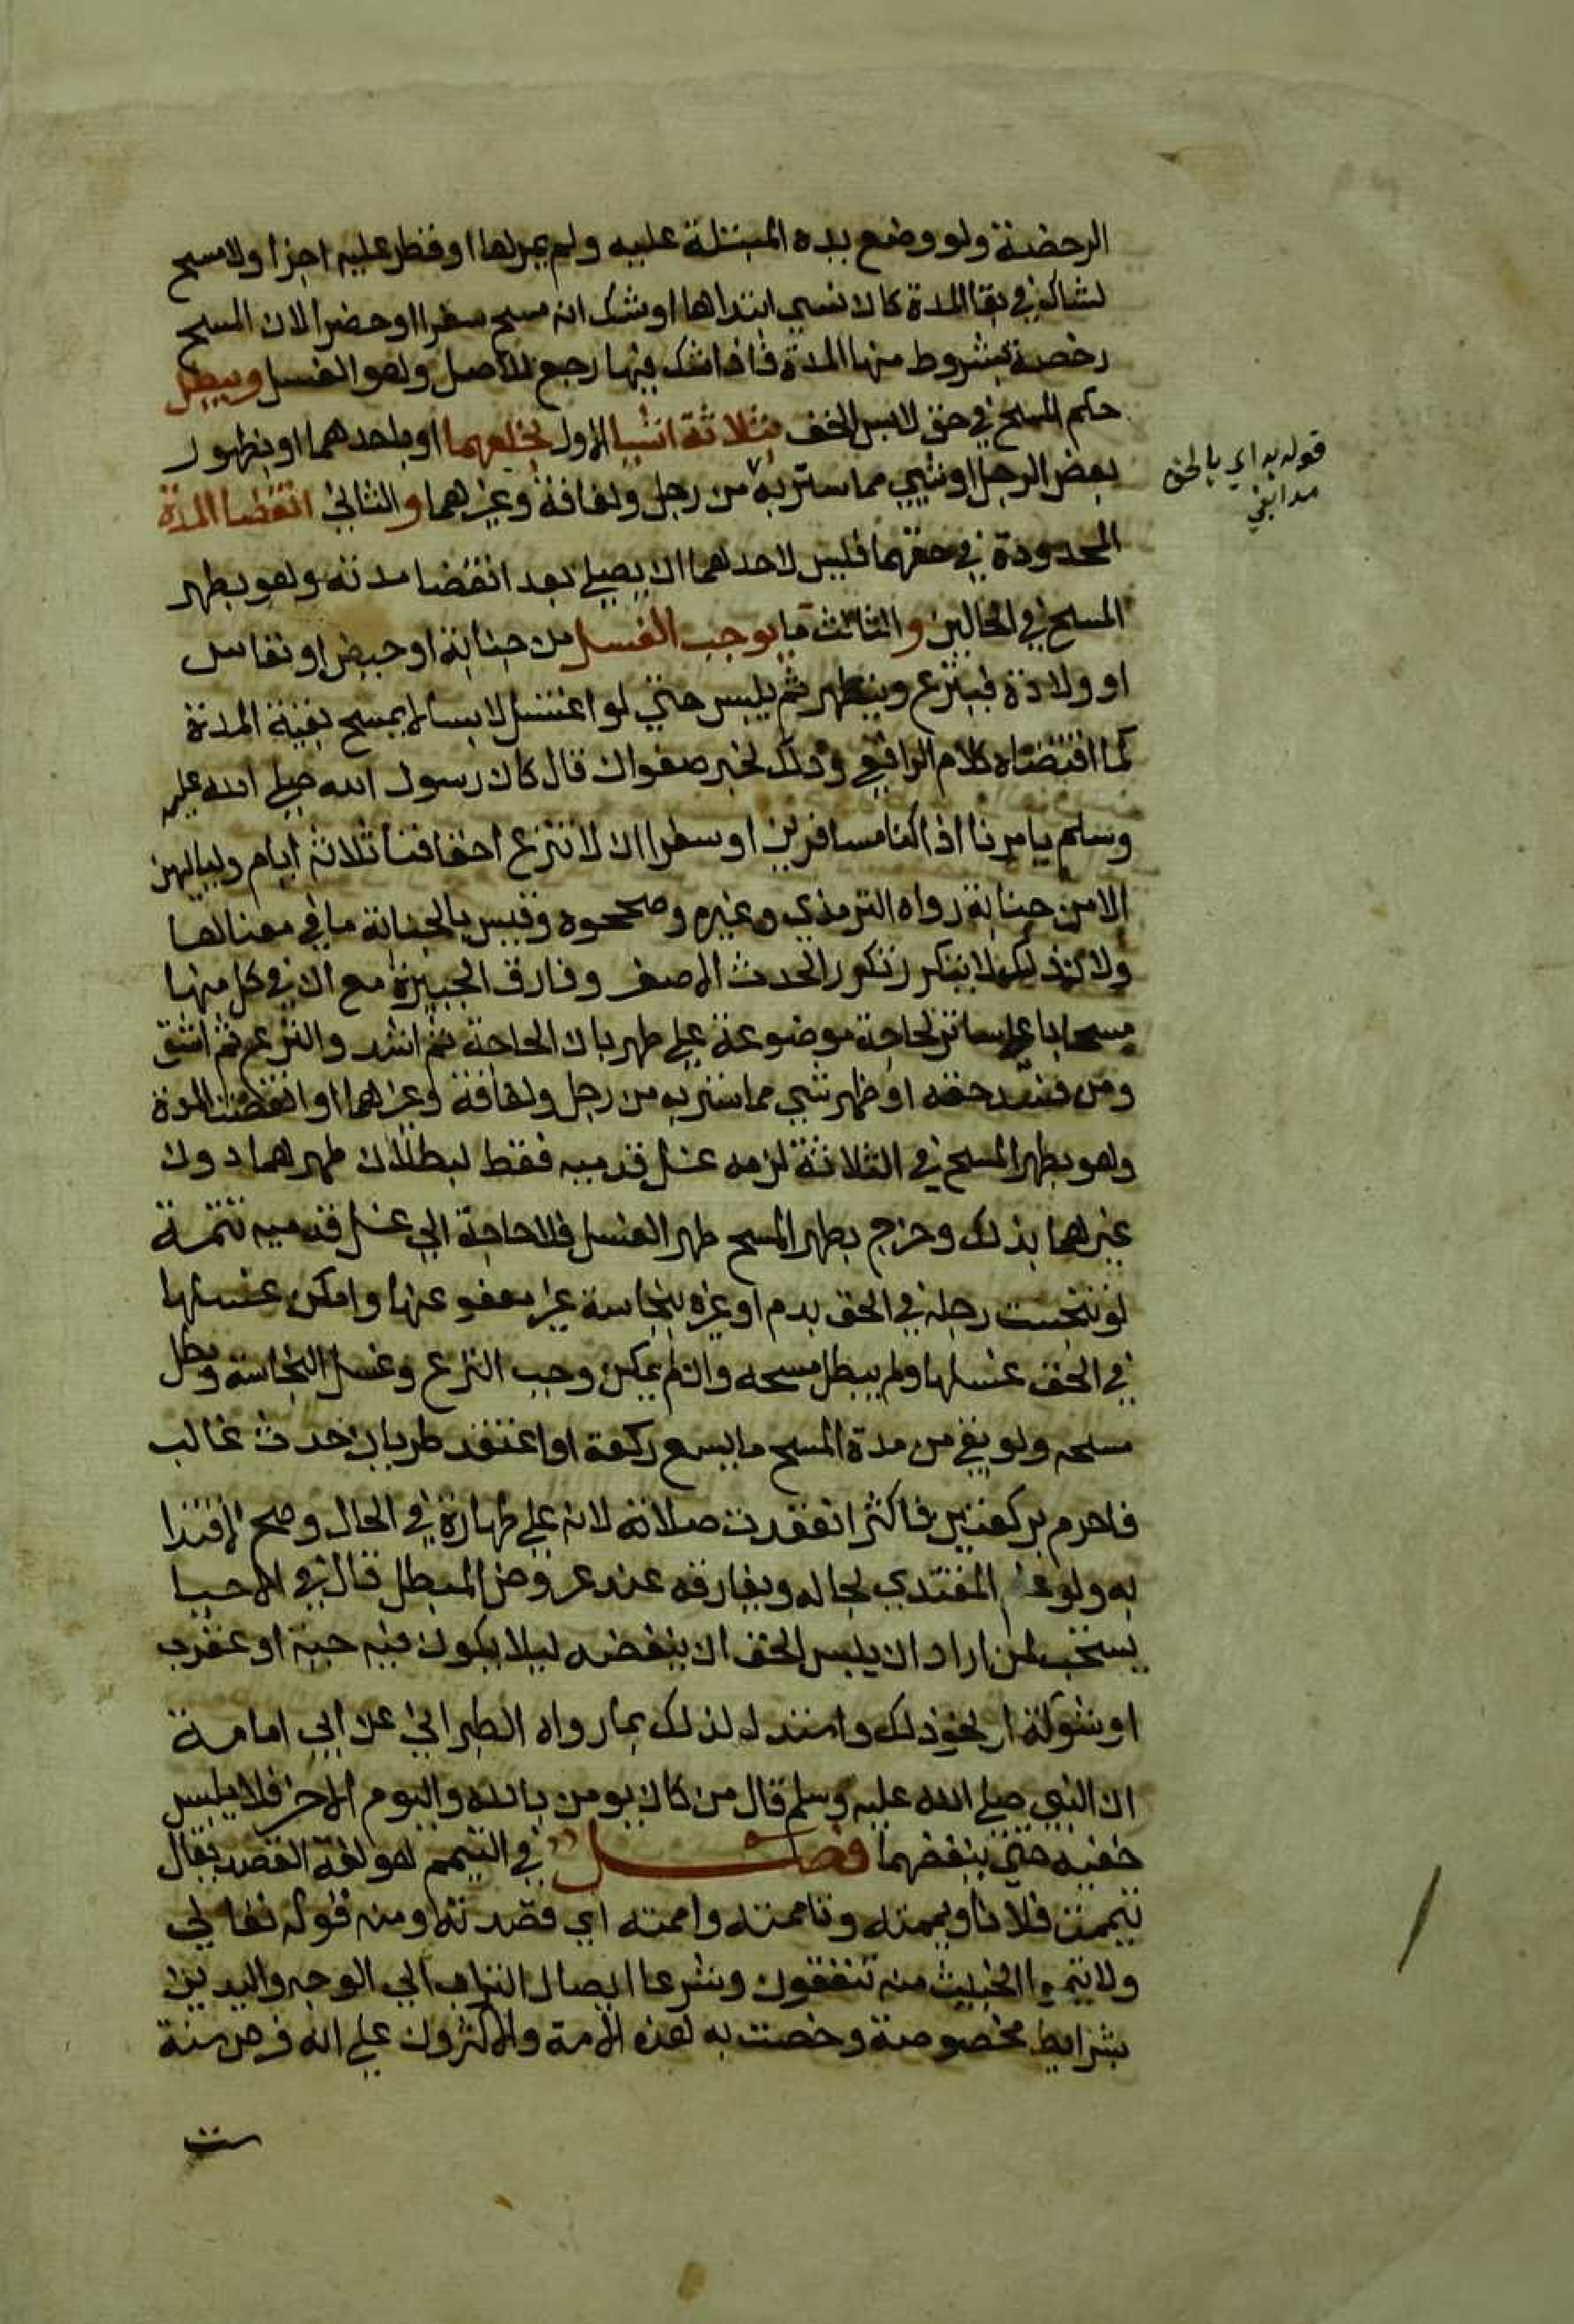 الرخصة ولو وضع يده المبتلة عليه ولم يمرها او قطر عليه اجزا ولا مسح
لشاك في بقا المدة كان نسي ابتداها او شك انه مسح سفرا او حضرا لان المسح
رخصة بشروط منها المدة فاذا شك فيها رجع للاصل وهو الغسل ويبطل
حكم المسح في حق لابس الخف بثلاثة اشيا الاول بخلعهما او باحدهما او بظهور
بعض الرجل او شيي مما ستر به من رجل ولفافة وغيرهما والثاني انقضا المدة
المحدودة في حقهما فليس لاحدهما ان يصلي بعد انقضا مدته وهو بطهر
المسح في الحالين والثالث ما يوجب الغسل من جنابة او حيض او نفاس
او ولادة فينزع ويتطهر ثم يلبس حتي لو اغتسل لابسا لا يمسح بقية المدة
كما اقتضاه كلام الرافعي وذلك لخبر صفوان قال كان رسول الله صلي الله عليه
وسلم يامرنا اذا كنا مسافرين او سفرا ان لا ننزع اخفافنا ثلاثة ايام ولياليهن
الا من جنابة رواه الترمذي وغيره وصححوه وقيس بالجنابة ما في معناها
ولان ذلك لا يتكرر تكرر الحدث الاصغر وفارق الجبيرة مع ان في كل منها
مسحا باعلي ساتر لحاجة موضوعة علي طهر بان الحاجة ثم اشد والنزع ثم اشق
ومن فسد خفه او ظهر شي مما ستر به من رجل ولفافة وغيرهما او انقضت المدة
وهو بطهر المسح في الثلاثة لزمه غسل قدميه فقط لبطلان طهرهما دون
غيرهما بذلك وخرج بطهر المسح طهر الغسل فلا حاجة الي غسل قدميه تتمة
لو تنجست رجله في الخف بدم او غيره بنجاسة غير معفو عنها وامكن غسلها
في الخف غسلها ولم يبطل مسحه وان لم يمكن وجب النزع وغسل النجاسة وبطل
مسحه ولو بقي من مدة المسح ما يسع ركعة او اعتقد طريان حدث غالب
فاحرم بركعتين فاكثر انعقدت صلاته لانه علي طهارة في الحال وصح الاقتدا
به ولو علم المقتدي بحاله ويفارقه عند عروض المبطل قال في الاحيا
يستحب لمن اراد ان يلبس الخف ان ينفضه ليلا يكون فيه حية او عقرب
او شوكة او نحو ذلك واستدل لذلك بما رواه الطبراني عن ابي امامة
ان النبي صلي الله عليه وسلم قال من كان يومن بالله واليوم الاخر فلا يلبس
خفيه حتي ينفضهما فصل في التيمم هو لغة القصد يقال
تيممت فلانا ويممته وتاممته واممته اي قصدته ومنه قوله تعالي
ولا تيمموا الخبيث منه تنفقون وشرعا ايصال التراب الي الوجه واليدين
بشرايط مخصوصة وخصت به هذه الامة والاكثرون علي انه فرض سنة
ست
قوله به اي بالخف
مدابغي